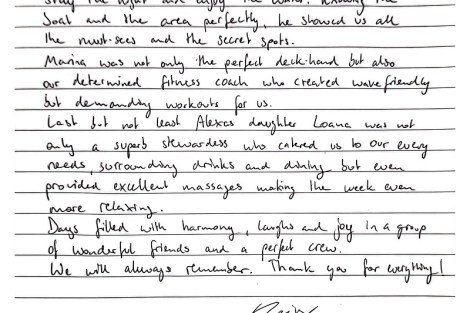 stay the night and enjoy the water. Knowing the
boat and the area perfectly, he showed us all
the must-sees and the secret spots.
Marina was not only the perfect deck-hand but also
our determined fitness coach who created wavefriendly
but demanding workouts for us.
Last but not least Alexas daughter Loana was not
only a superb stewardess who catered us to our every
needs, surrounding drinks and dining but even
provided excellent massages making the week even
more relaxing.
Days filled with harmony, laughs and joy in a group
of wonderful friends and a perfect crew.
We will always remember. Thank you for everything!